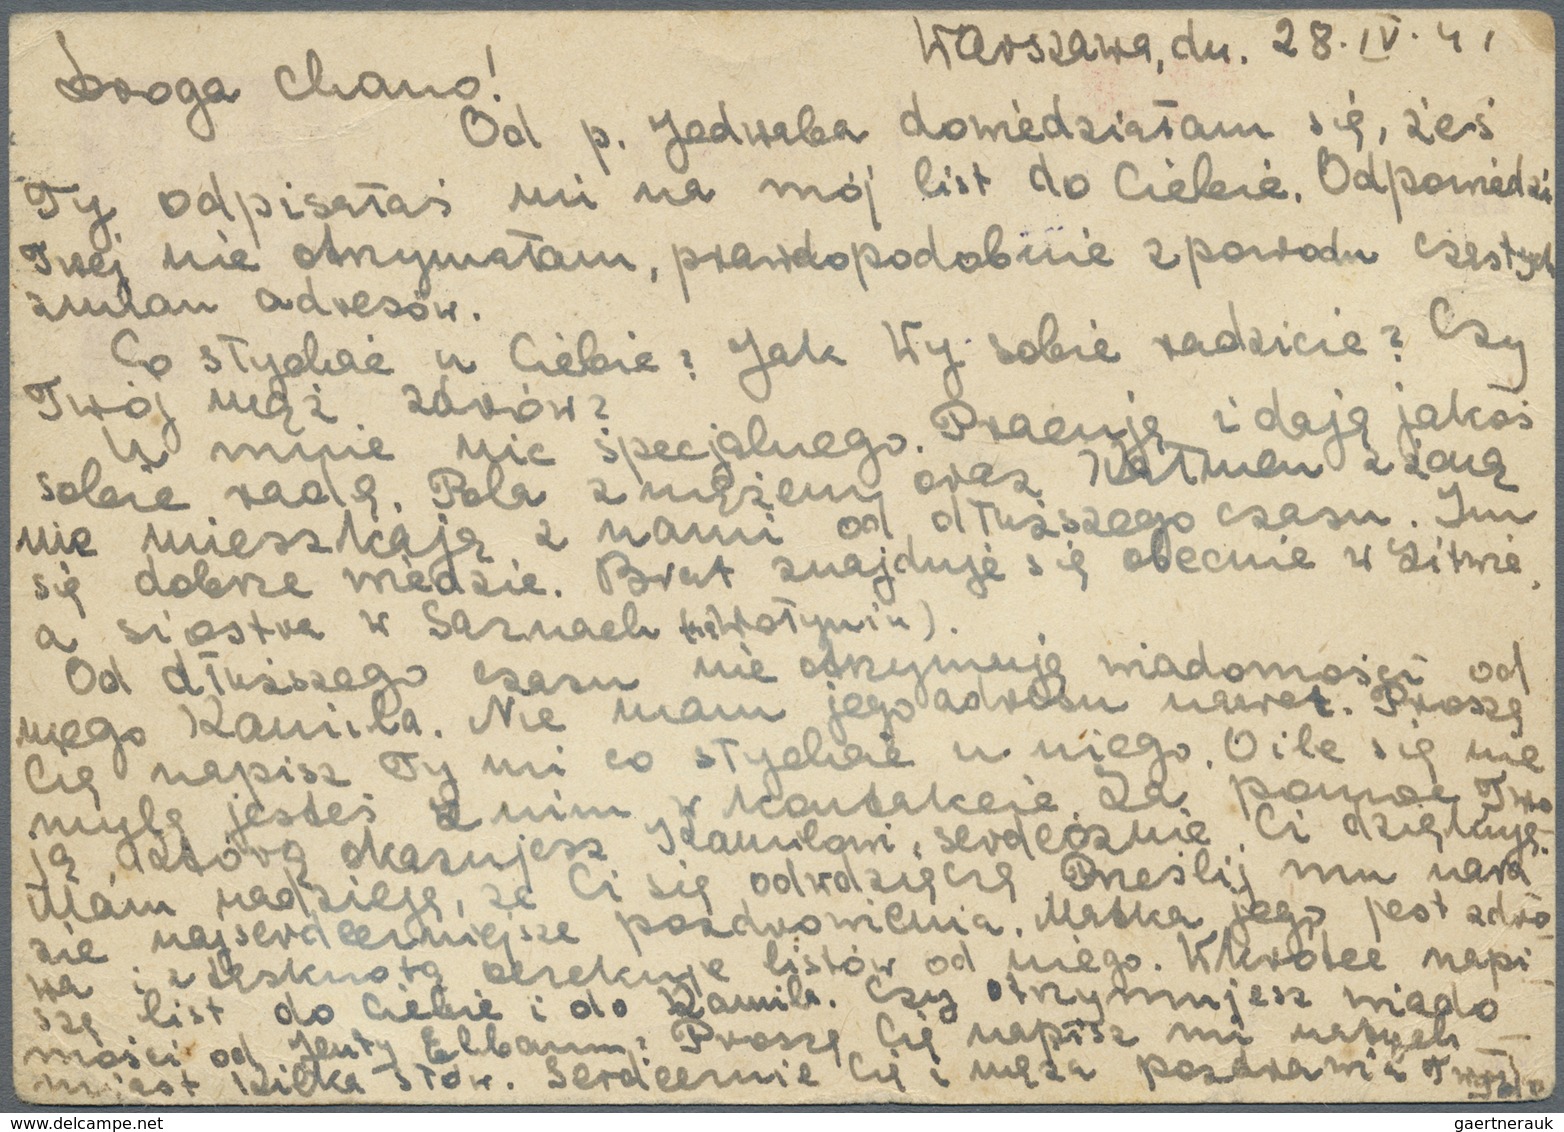 Warszawa, dn. 28.IV.41
Droga Chano!
Od p. Jedwaba dowiedziałam się, żeś
Ty odpisałaś mi na mój list do Ciebie. Odpowiedzi
Twej nie otrzymałam, prawdopodobnie z powodu częstych
zmian adresów.
Co słychać u Ciebie? Jak Wy sobie radzicie? Czy
Twój mąż zdrów?
U mnie nic specjalnego. Pracuję i daję jakoś
sobie radę. Pola z mężem oraz Kałmen z żoną
nie mieszkają z nami od dłuższego czasu. Im
się dobrze wiedzie. Brat znajduje się obecnie w Litwie,
a siostra w Sarnach (na Wołyniu).
Od dłuższego czasu nie otrzymuję wiadomości od
mego Kamila. Nie mam jego adresu nawet. Proszę
Cię napisz Ty mi co słychać u niego. O ile się nie
mylę jesteś z nim w kontakcie. Za pomoc Two
ją, którą okazujesz Kamilowi, serdecznie Ci dziękuję.
Mam nadzieję, że Ci się odwdzięczę. Prześlij mu nara
zie najserdeczniejsze pozdrowienia. Matka jego jest zdro
wa i z tęsknotą oczekuje listów od niego. Wkrótce napi
szę list do Ciebie i do Kamila. Czy otrzymujesz wiado
mości od Jenty Elbaum? Proszę Cię napisz mi natych-
miast kilka słów. Serdecznie Cię i męża pozdrawia Twoja
gaertnerauk